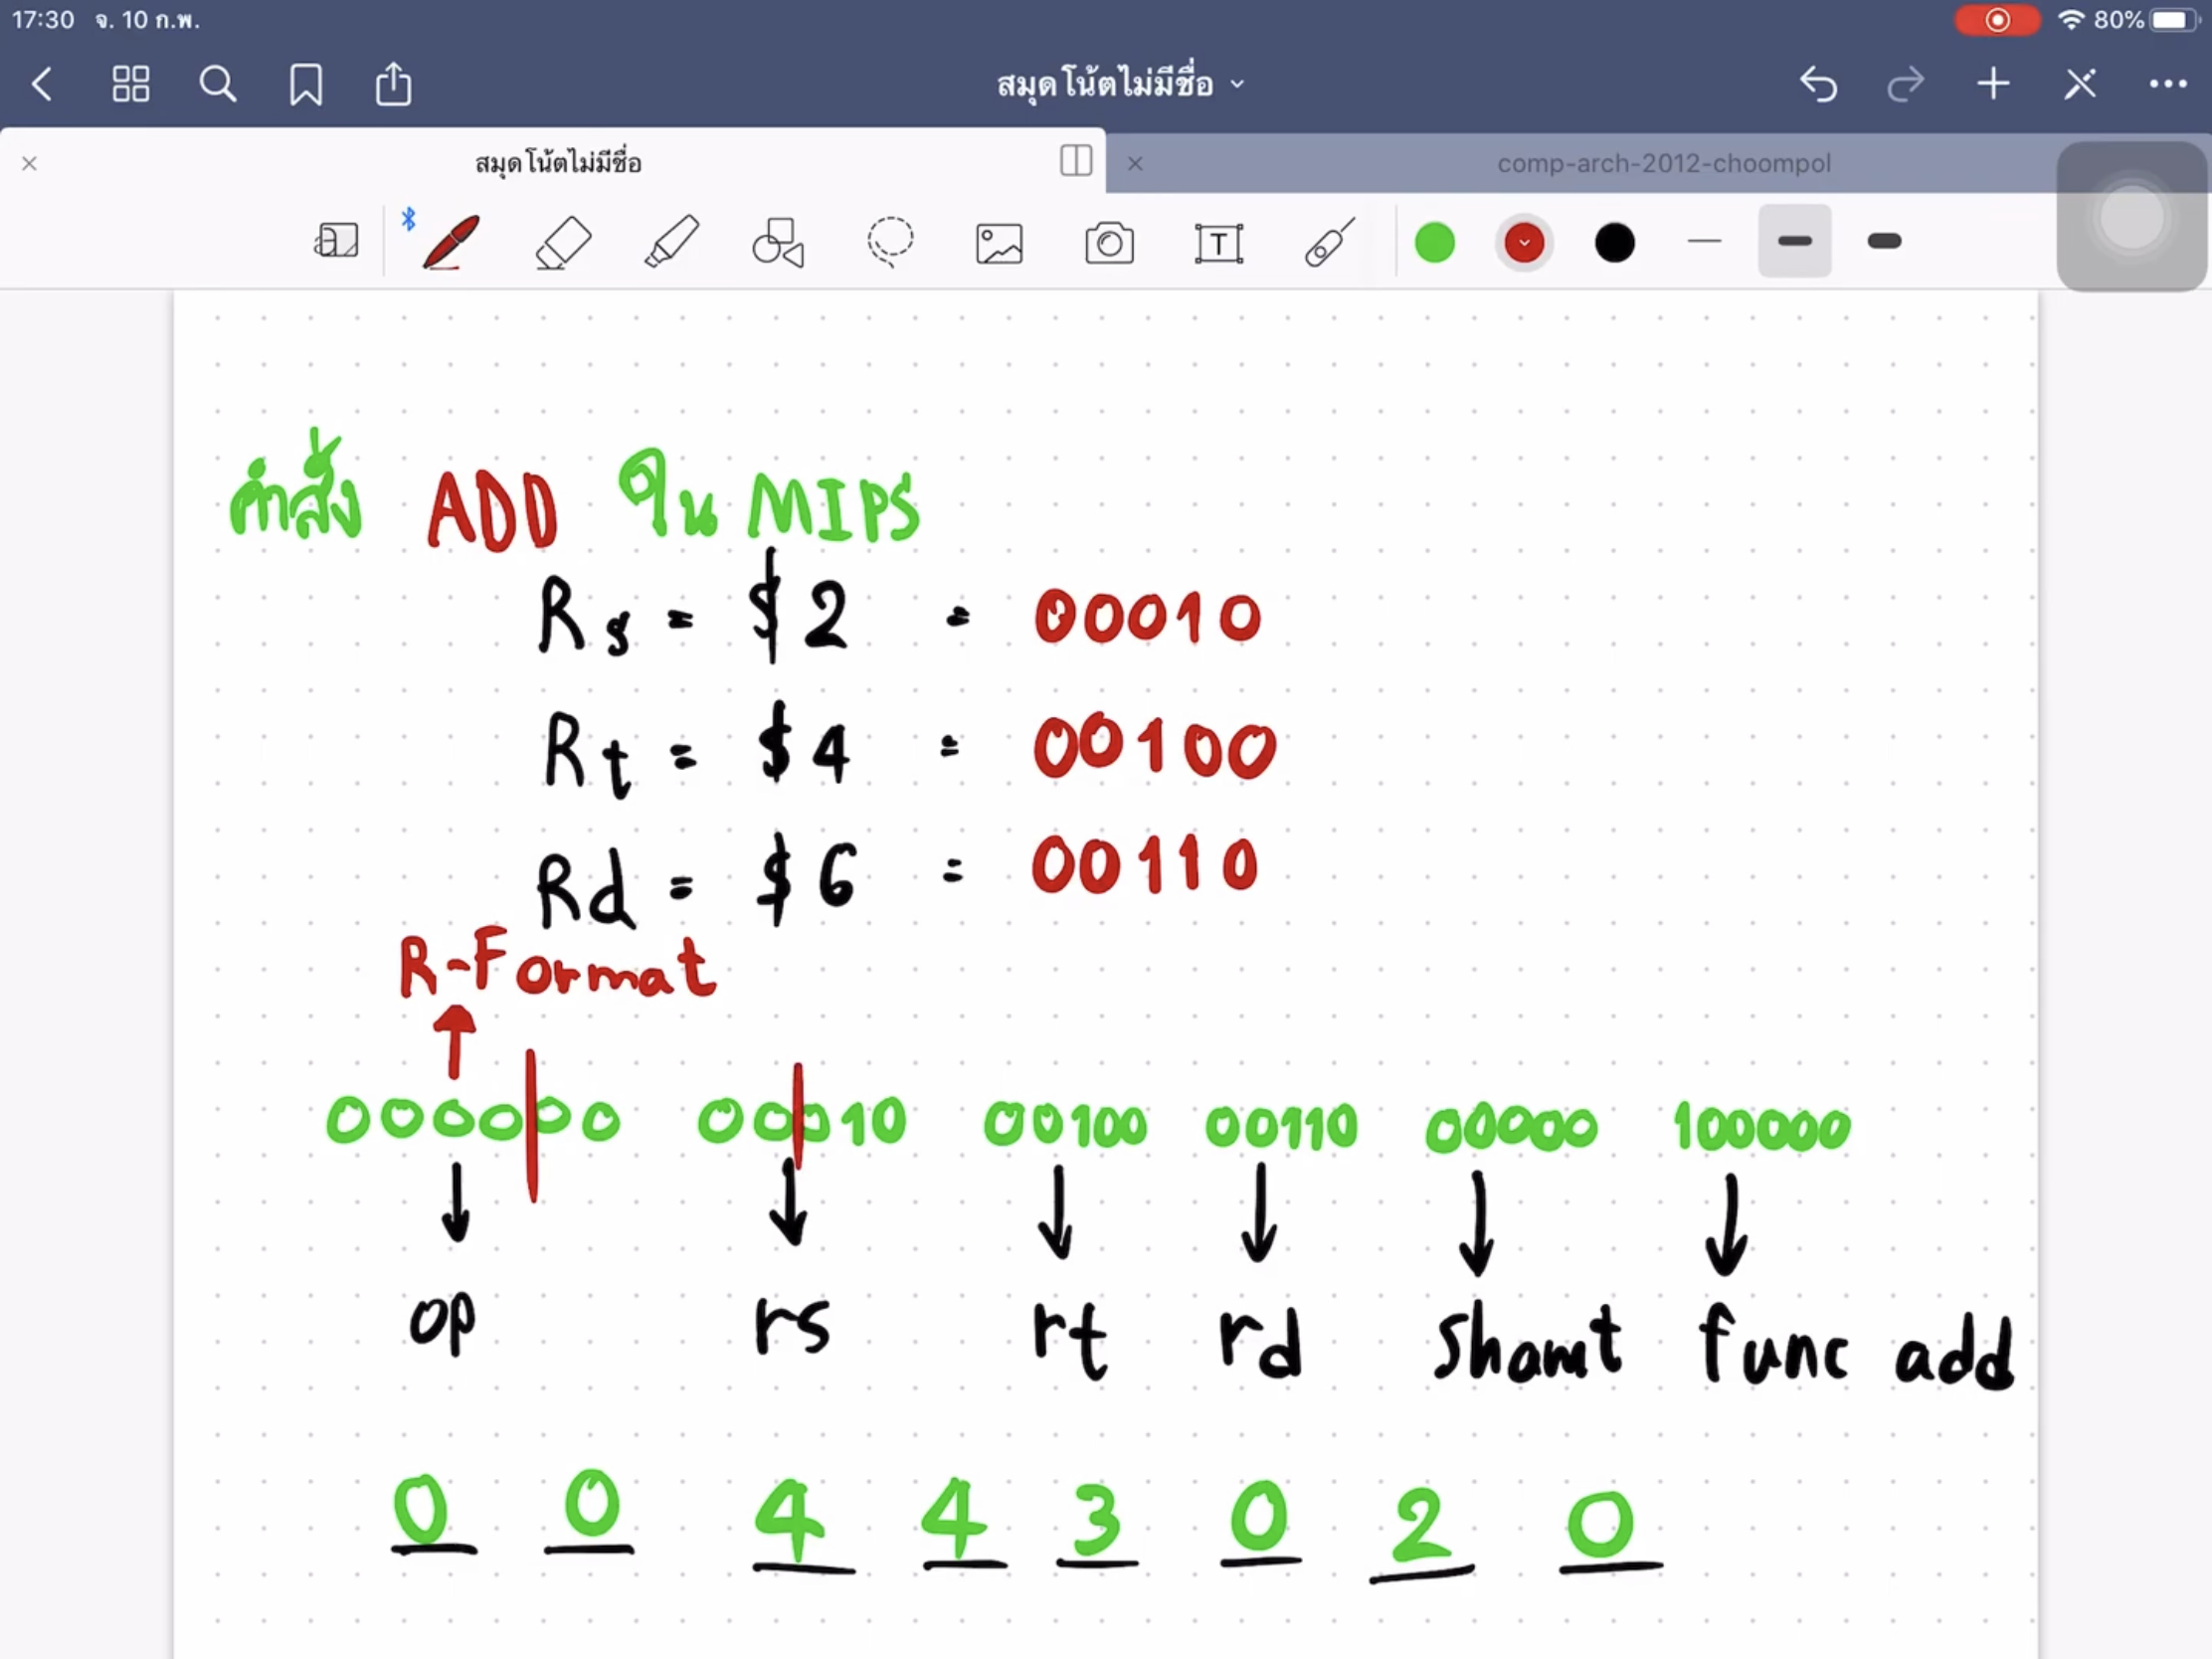 17:30 จ. 10 ก.พ. 80%
สมุดโน้ตไม่มีชื่อ
สมุดโน้ตไม่มีชื่อ comp-arch-2012-choompol
คำสั่ง ADD ใน MIPS
Rs = $2 = 00010
Rt = $4 = 00100
Rd = $6 = 00110
R-Format
000000 00010 00100 00110 00000 100000
op rs rt rd shamt func add
0 0 4 4 3 0 2 0